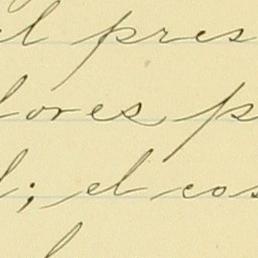 el pres
lores p
l; el cos